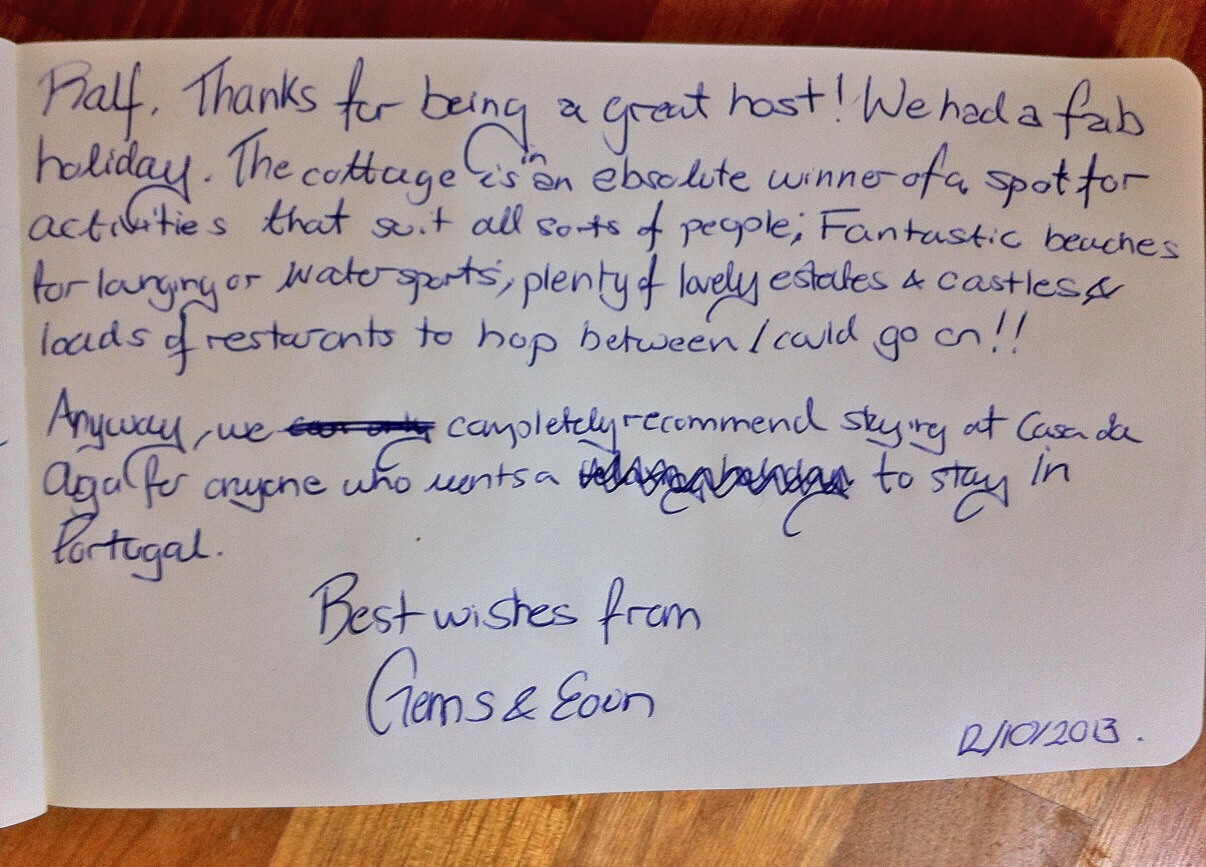 Ralf. Thanks for being a great host! We had a fab
holiday. The cottage is in an absolute winner of a spot for
activities that suit all sorts of people; Fantastic beaches
for lounging or watersports, plenty of lovely estates & castles &
loads of resturants to hop between I could go on!!
Anyway, we completely recommend staying at Casa da
Aga for anyone who wants a to stay in
Portugal.
Best wishes from
Gems & Eoun
12/10/2013.